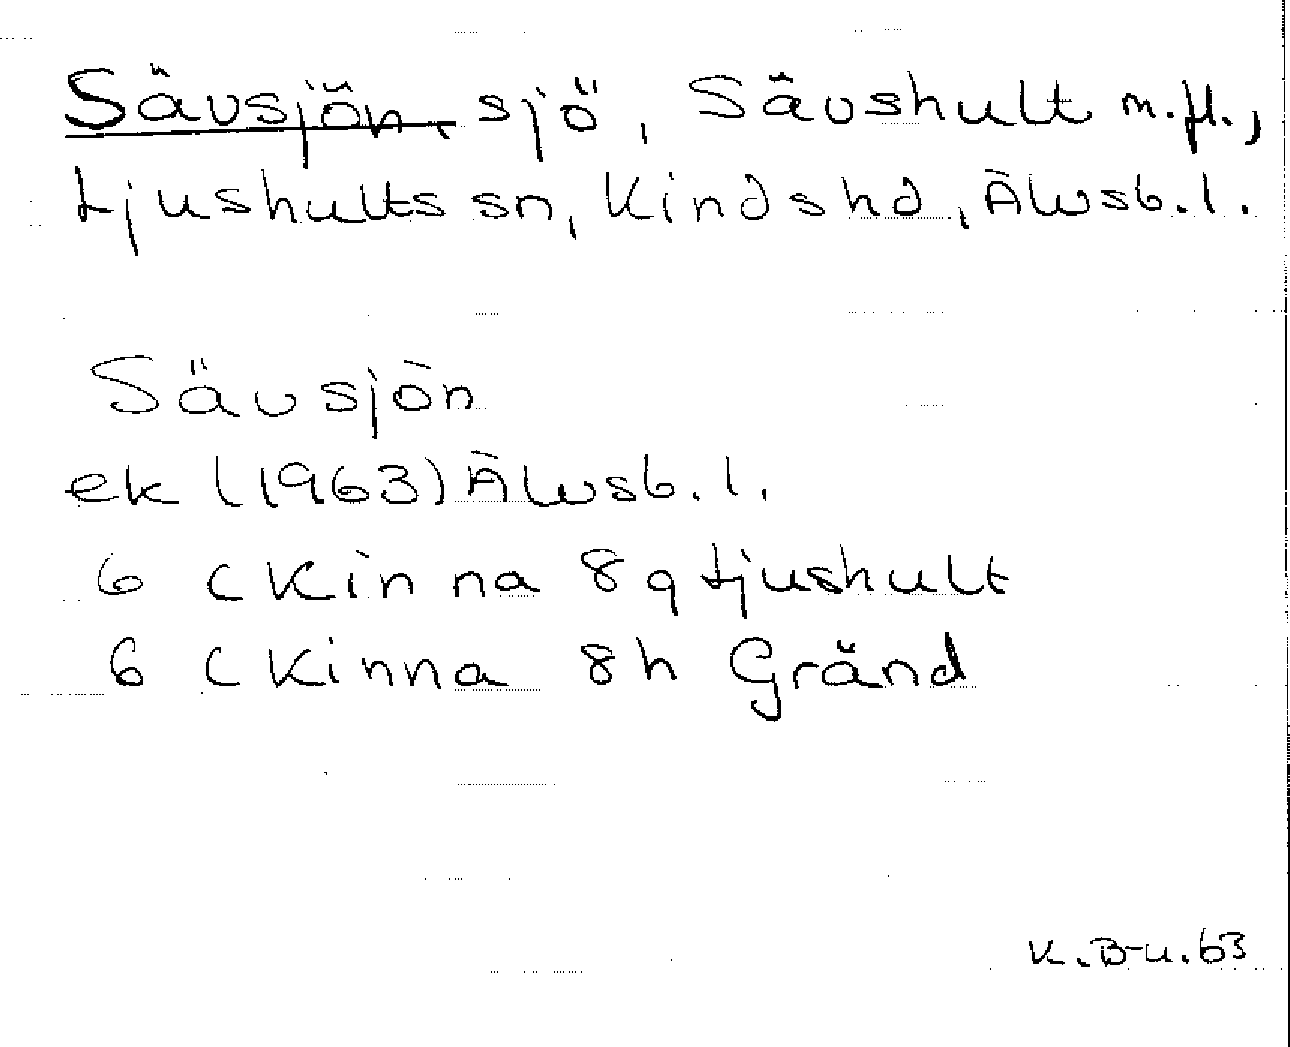 Sävsjön, sjö, Sävshult m.fl.,
Ljushults sn, Kinds hd, Älvsb. l.
Sävsjön
ek (1963) Älvsb. l.
6 C Kinna 8g Ljushult
6 C Kinna 8h Gränd
K. B-u. 63